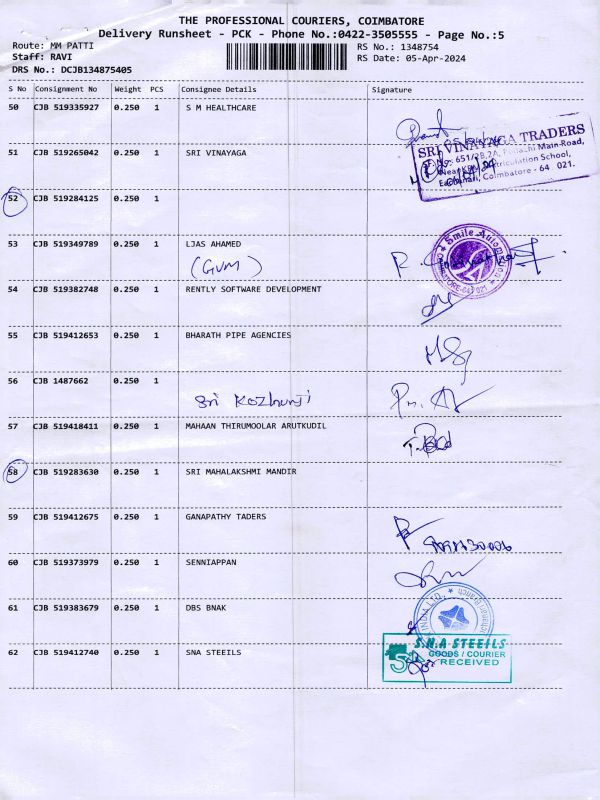 THE PROFESSIONAL COURIERS, COIMBATORE
Delivery Runsheet - PCK - Phone No.:0422-3505555 - Page No.:5
Route: MM PATTI RS No.: 1348754
Staff: RAVI RS Date: 05-Apr-2024
DRS No.: DCJB134875405
S No Consignment No Weight PCS Consignee Details Signature
50 CJB 519335927 0.250 1 S M HEALTHCARE
SRI VINAYAGA TRADERS
51 CJB 519265042 0.250 1 SRI VINAYAGA
52 CJB 519284125 0.250 1
53 CJB 519349789 0.250 1 LJAS AHAMED
(GVM)
54 CJB 519382748 0.250 1 RENTLY SOFTWARE DEVELOPMENT
55 CJB 519412653 0.250 1 BHARATH PIPE AGENCIES
56 CJB 1487662 0.250 1
Sri Kozhunji
57 CJB 519418411 0.250 1 MAHAAN THIRUMOOLAR ARUTKUDIL
58 CJB 519283630 0.250 1 SRI MAHALAKSHMI MANDIR
59 CJB 519412675 0.250 1 GANAPATHY TADERS
60 CJB 519373979 0.250 1 SENNIAPPAN
61 CJB 519383679 0.250 1 DBS BNAK
62 CJB 519412740 0.250 1 SNA STEEILS
S.N.A STEEILS
GOODS / COURIER
RECEIVED